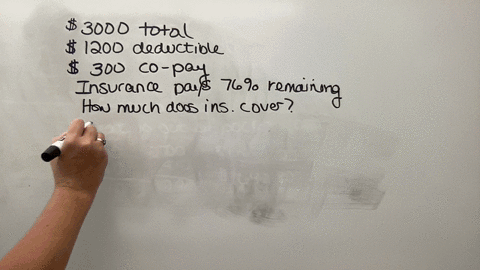 $3000 total
$1200 deductible
$ 300 co-pay
Insurance pays 76% remaining
How much does ins. cover?